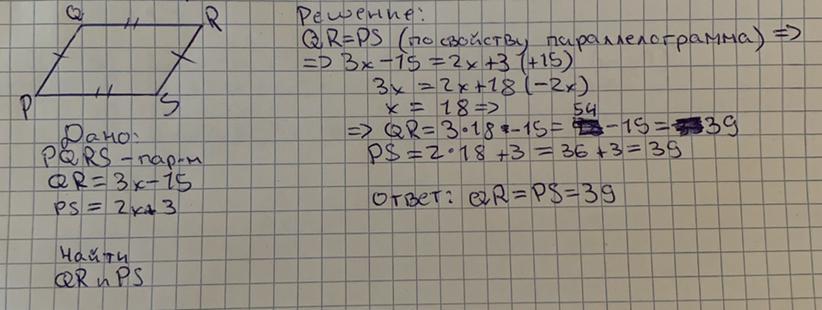 Q R
P S
Дано:
PQRS - пар-м
QR = 3x-15
PS = 2x+3
Найти
QR и PS
Решение:
QR = PS (по свойству параллелограмма) =>
=> 3x-15 = 2x+3 (+15)
3x = 2x+18 (-2x)
x = 18 =>
=> QR = 3·18 - 15 = 54 - 15 = 39
PS = 2·18 + 3 = 36 + 3 = 39
Ответ: QR = PS = 39